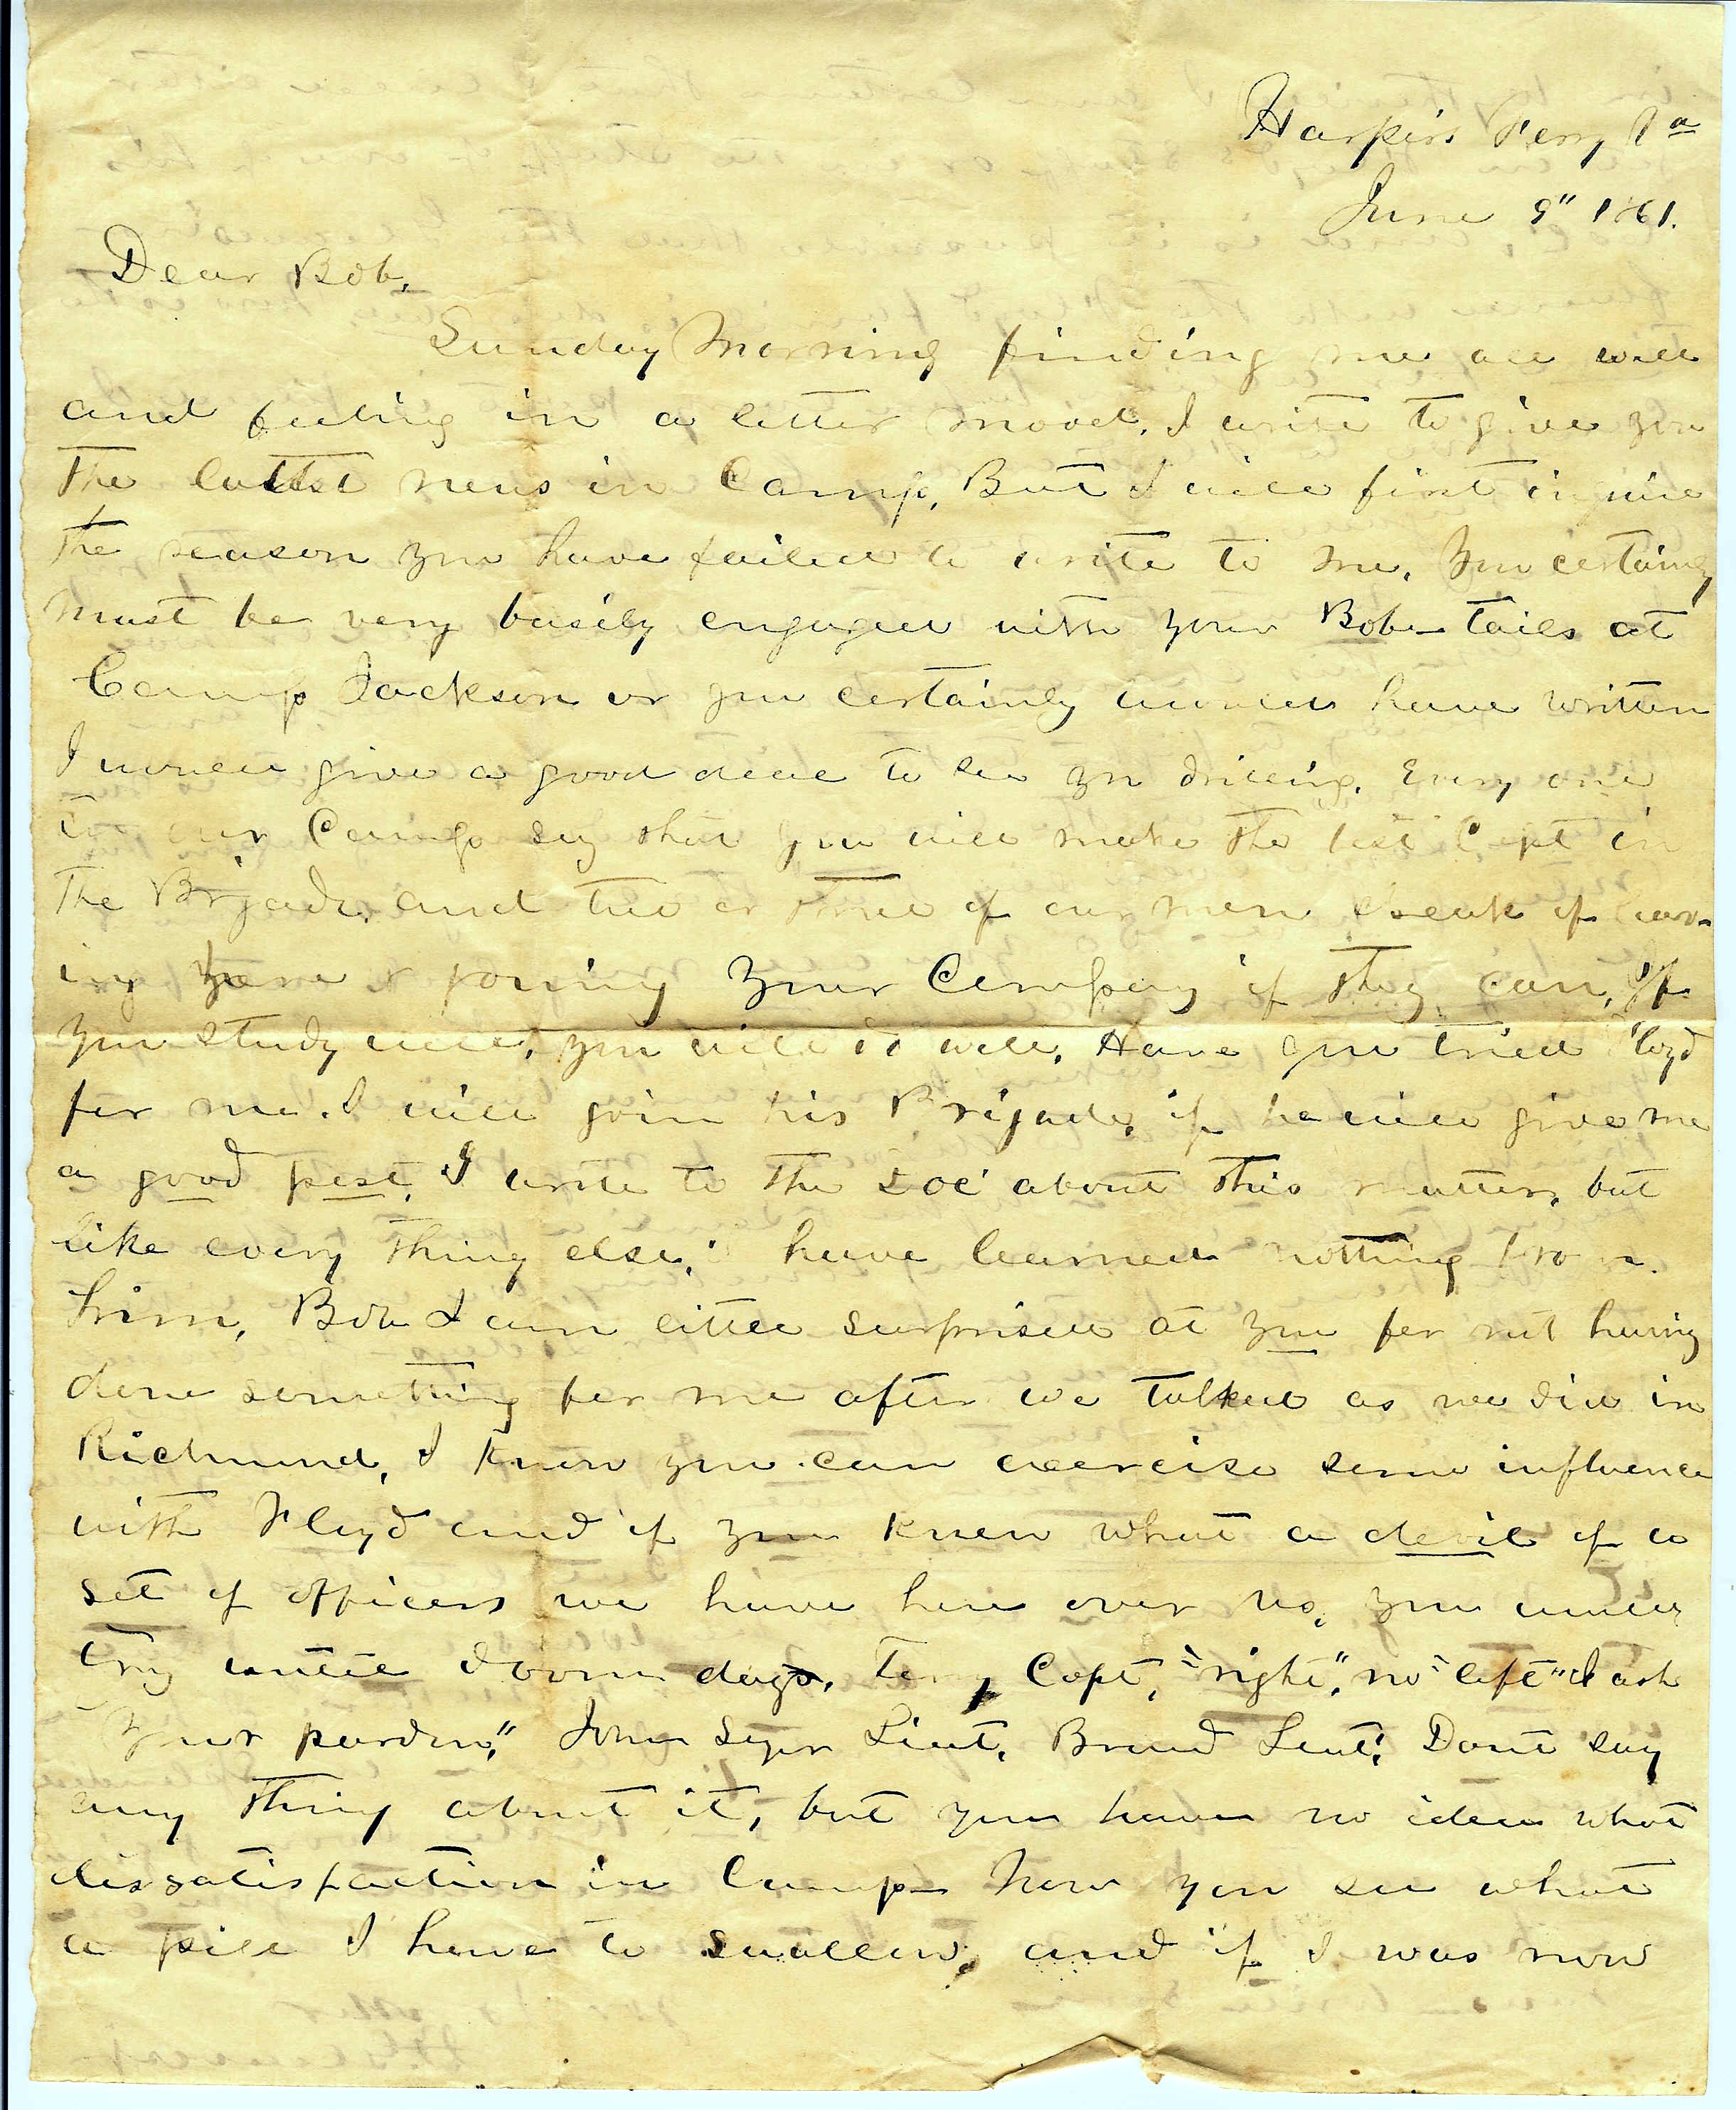 Harpers Ferry Va
June 9" 1861.
Dear Bob,
Sunday Morning finding me all well
and feeling in a letter mood, I write to give you
the latest news in Camp, But I will first inquire
the reason you have failed to write to me, You certainly
must be very busily engaged with your Bob-tails at
Camp Jackson or you certainly would have written
I would give a good deal to see you drilling. Every one
in our Camp say that you will make the best Capt in
the Brigade, and two or three of our men speak of leav-
ing here & joining your Company if they can, If
you study well, you will do well, Have you tried Floyd
for me. I will join his Brigade, if he will give me
a good post, I write to the Doc about this matter, but
like every thing else, have learned nothing from
him, Bob I am little surprised at you for not having
done something for me after we talked as we did in
Richmond, I know you can exercise some influence
with Floyd and if you knew what a devil of a
set of officers we have here over us, you would
try until dooms days, Terry Capt, "right," no "left" "I ask
your pardon," John Syer Lieut, Brand Lieut, Dont say
any thing about it, but you have no idea what
dissatisfaction in Camp Now you see what
a pill I have to swallow, and if I was now